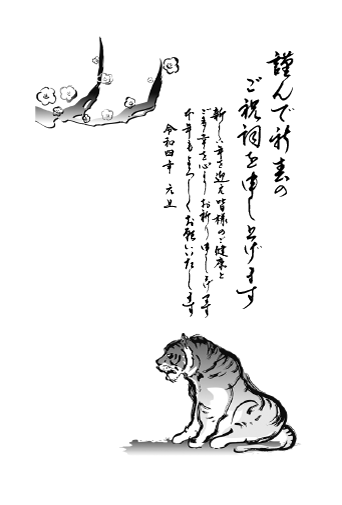 謹んで新春の
ご祝詞を申し上げます
新しい年を迎え皆様のご健康と
ご多幸を心よりお祈り申し上げます
本年もよろしくお願いいたします
令和四年 元旦